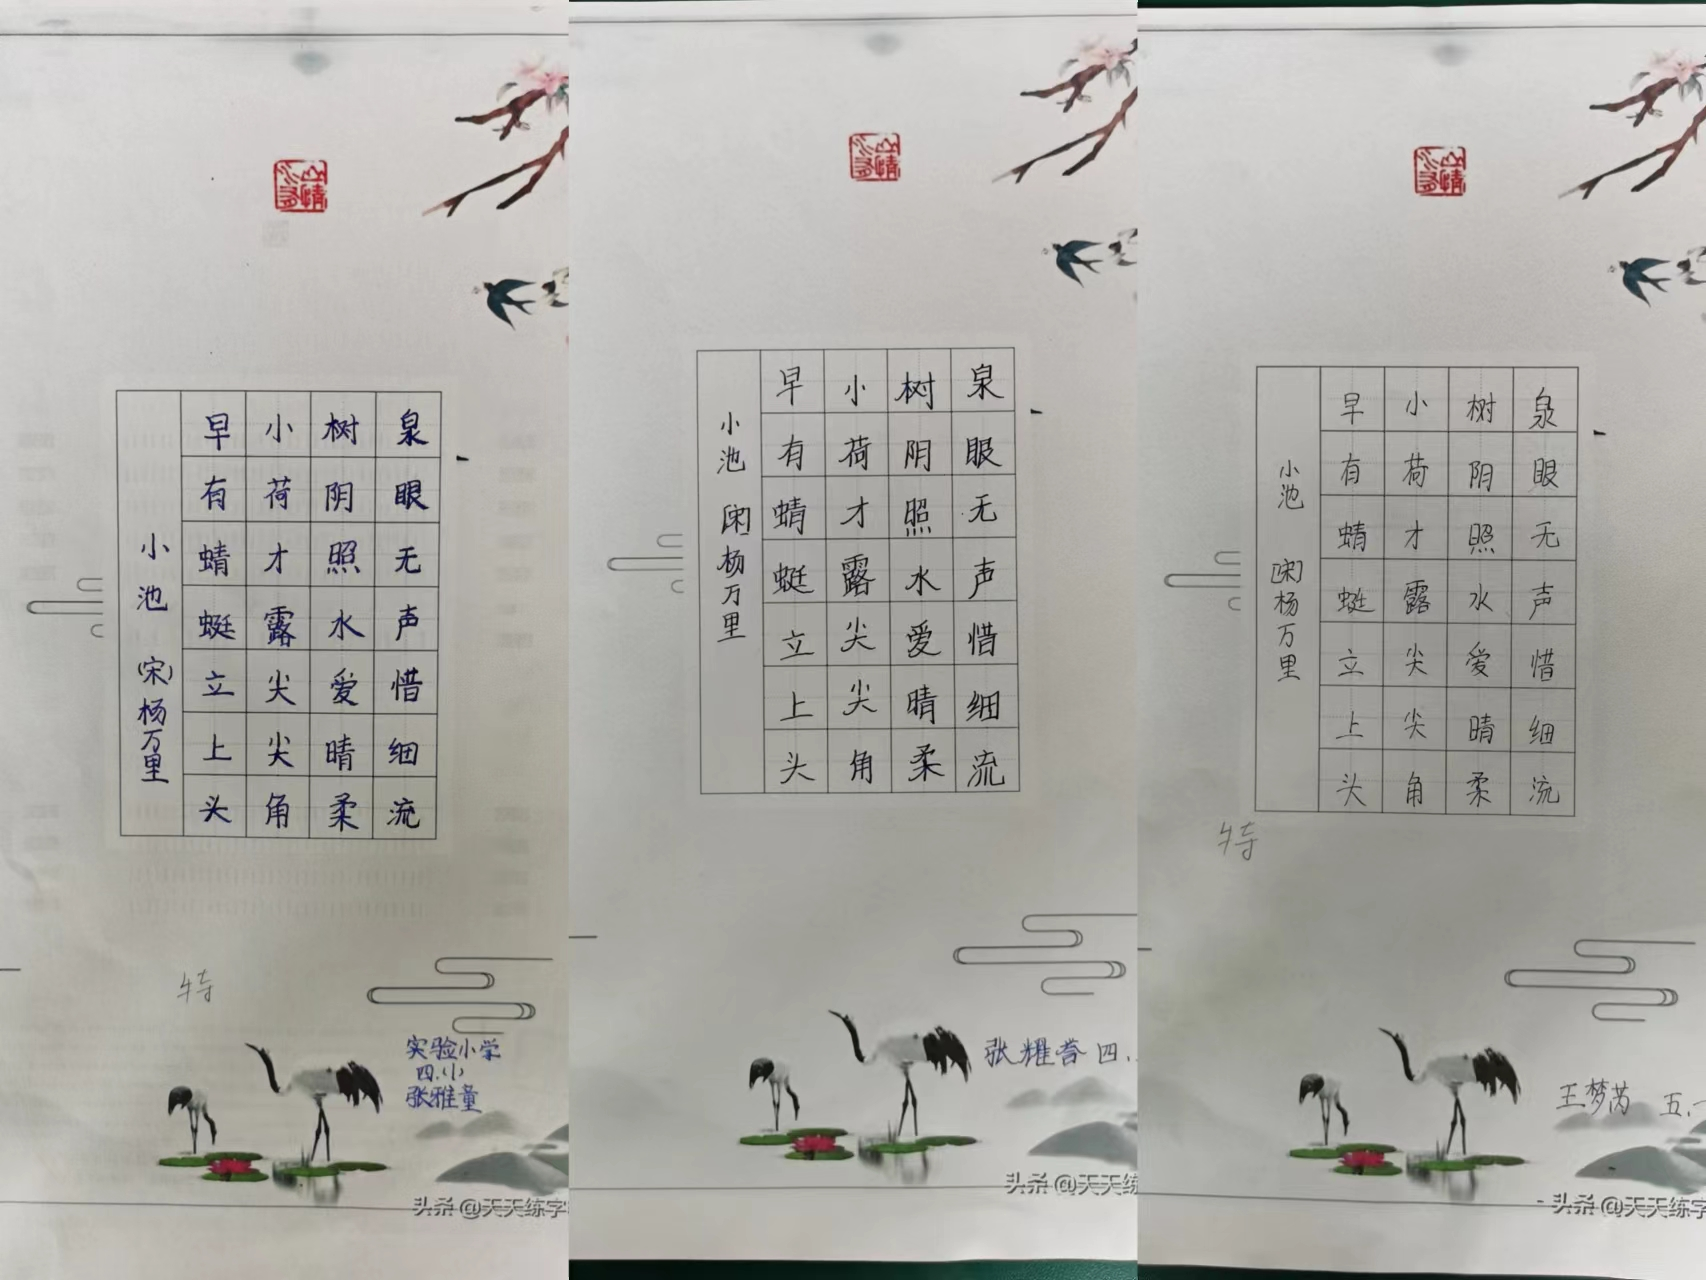 泉眼无声惜细流
树阴照水爱晴柔
小荷才露尖尖角
早有蜻蜓立上头
小池 (宋)杨万里
特
实验小学
四.(小)
张雅童
头条 @天天练字
泉眼无声惜细流
树阴照水爱晴柔
小荷才露尖尖角
早有蜻蜓立上头
小池 [宋]杨万里
张耀 四.
头条 @天天练
泉眼无声惜细流
树阴照水爱晴柔
小荷才露尖尖角
早有蜻蜓立上头
小池 [宋]杨万里
特
王梦芮 五.一
头条 @天天练字